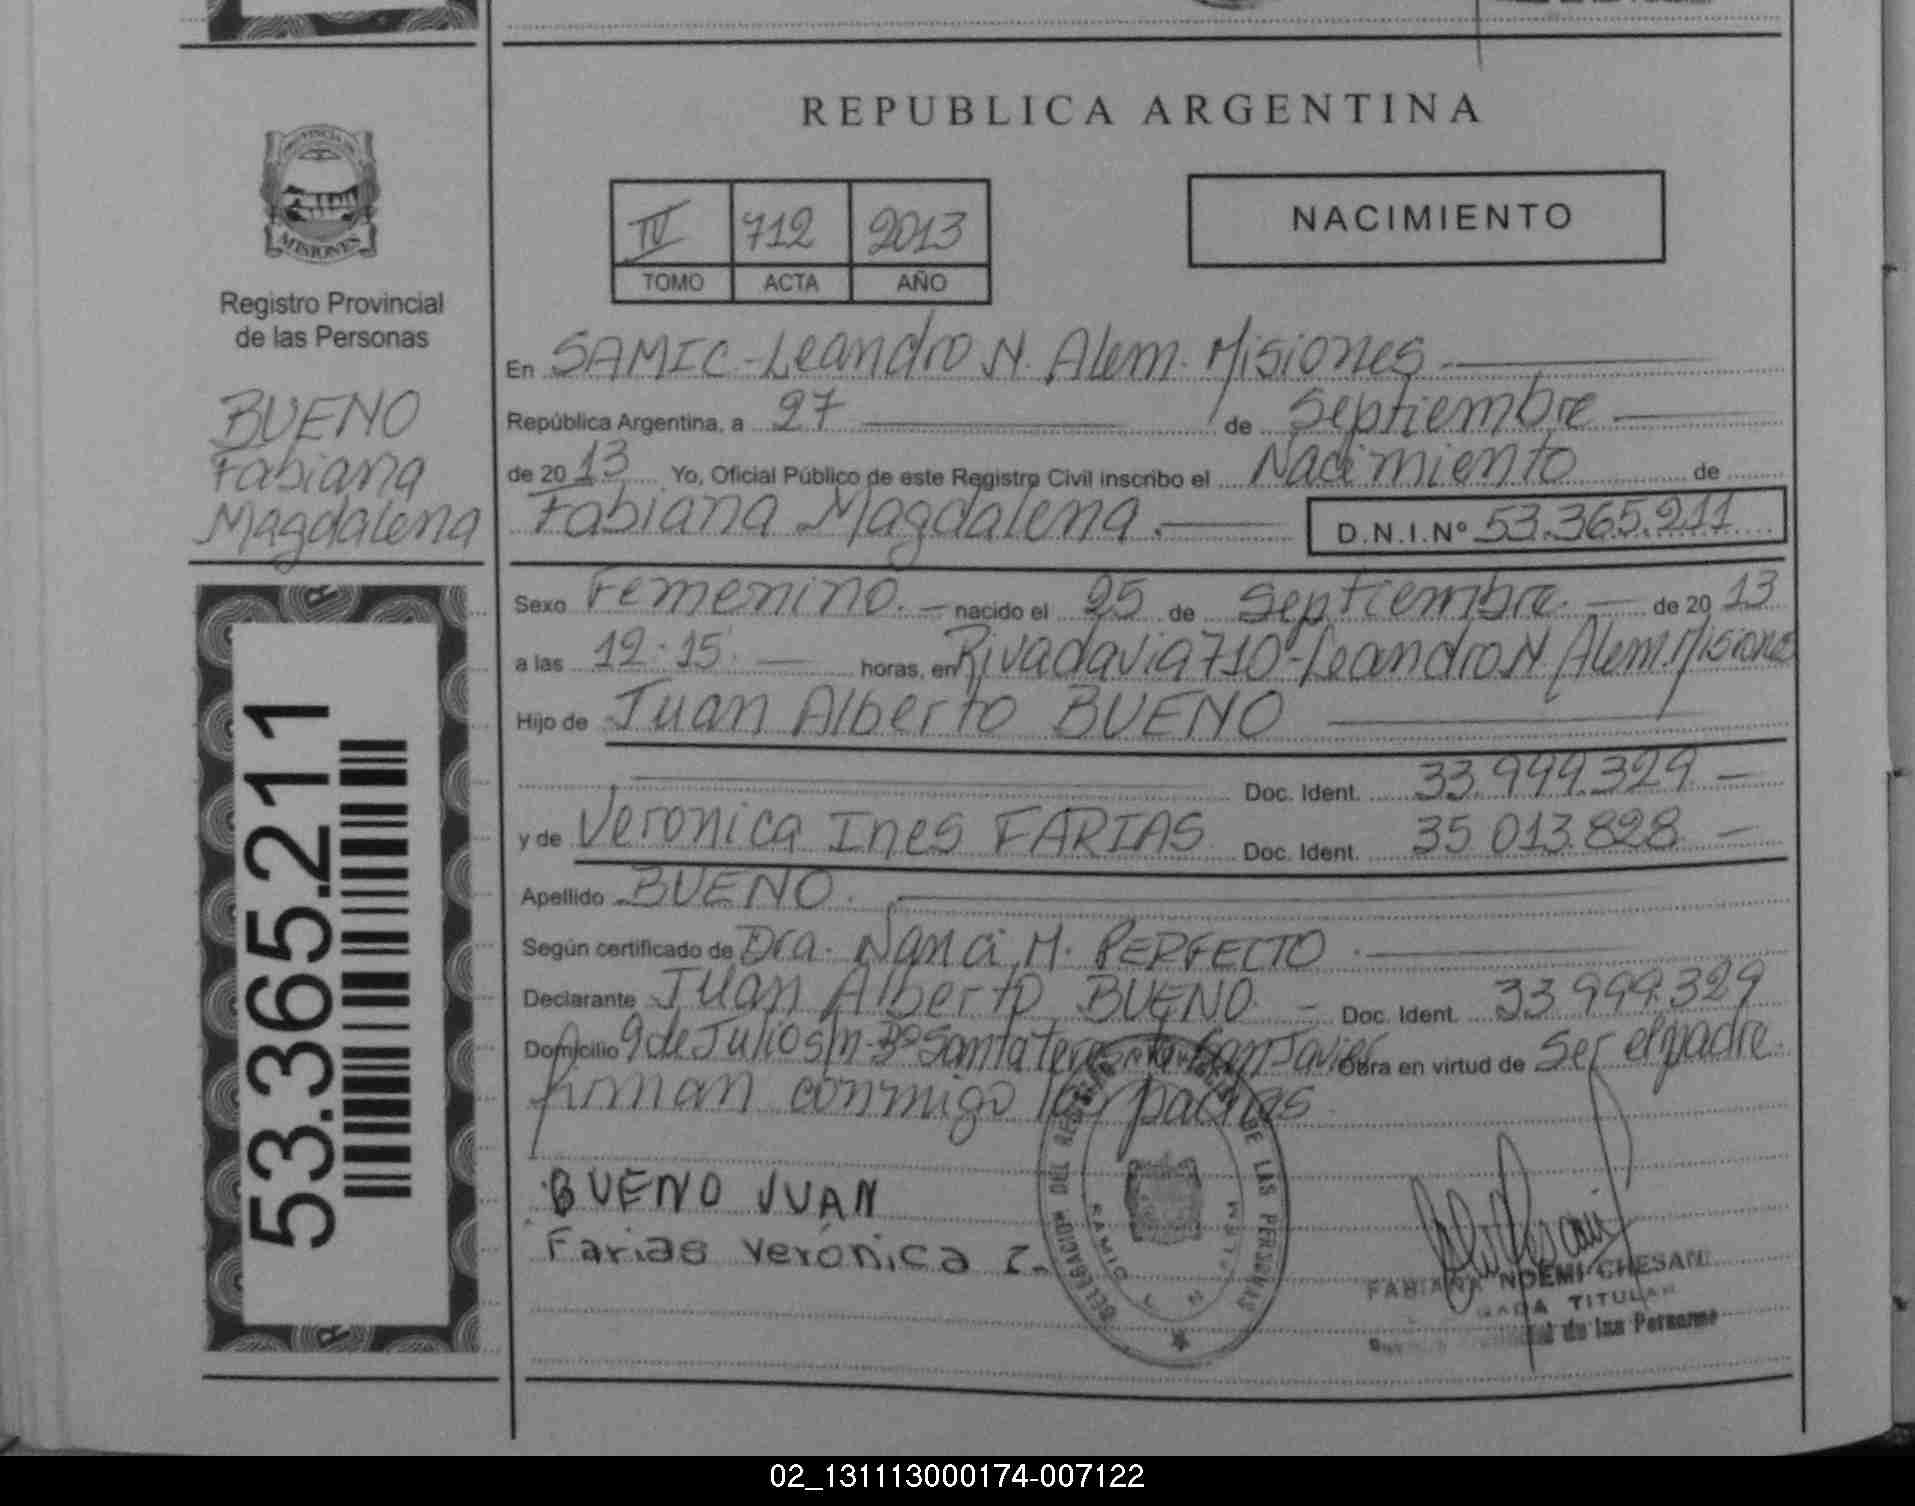 REPUBLICA ARGENTINA
PROVINCIA
MISIONES
Registro Provincial
de las Personas
BUENO
Fabiana
Magdalena
53.365.211
IV 712 2013
TOMO ACTA AÑO
NACIMIENTO
En SAMIC-Leandro N. Alem. Misiones
República Argentina, a 27 de Septiembre
de 2013 Yo, Oficial Público de este Registro Civil inscribo el Nacimiento de
Fabiana Magdalena. D.N.I.Nº 53.365.211
Sexo Femenino. nacido el 25 de Septiembre. de 2013
a las 12:15 horas, en Rivadavia 710-Leandro N. Alem. Misiones
Hijo de Juan Alberto BUENO
Doc. Ident. 33.999.329
y de Veronica Ines FARIAS Doc. Ident. 35.013.828
Apellido BUENO.
Según certificado de Dra. Nanci M. PERFECTO
Declarante Juan Alberto BUENO Doc. Ident. 33.999.329
Domicilio 9 de Julio s/n-Bº Santa Teresita San Javier Obra en virtud de Ser el padre.
firman conmigo los padres
BUENO JUAN
Farias Verónica I.
DELEGACION DEL REGISTRO PROVINCIAL DE LAS PERSONAS
SAMIC
FABIANA NOEMI CHESANI
TITULAR
de las Personas
02_131113000174-007122